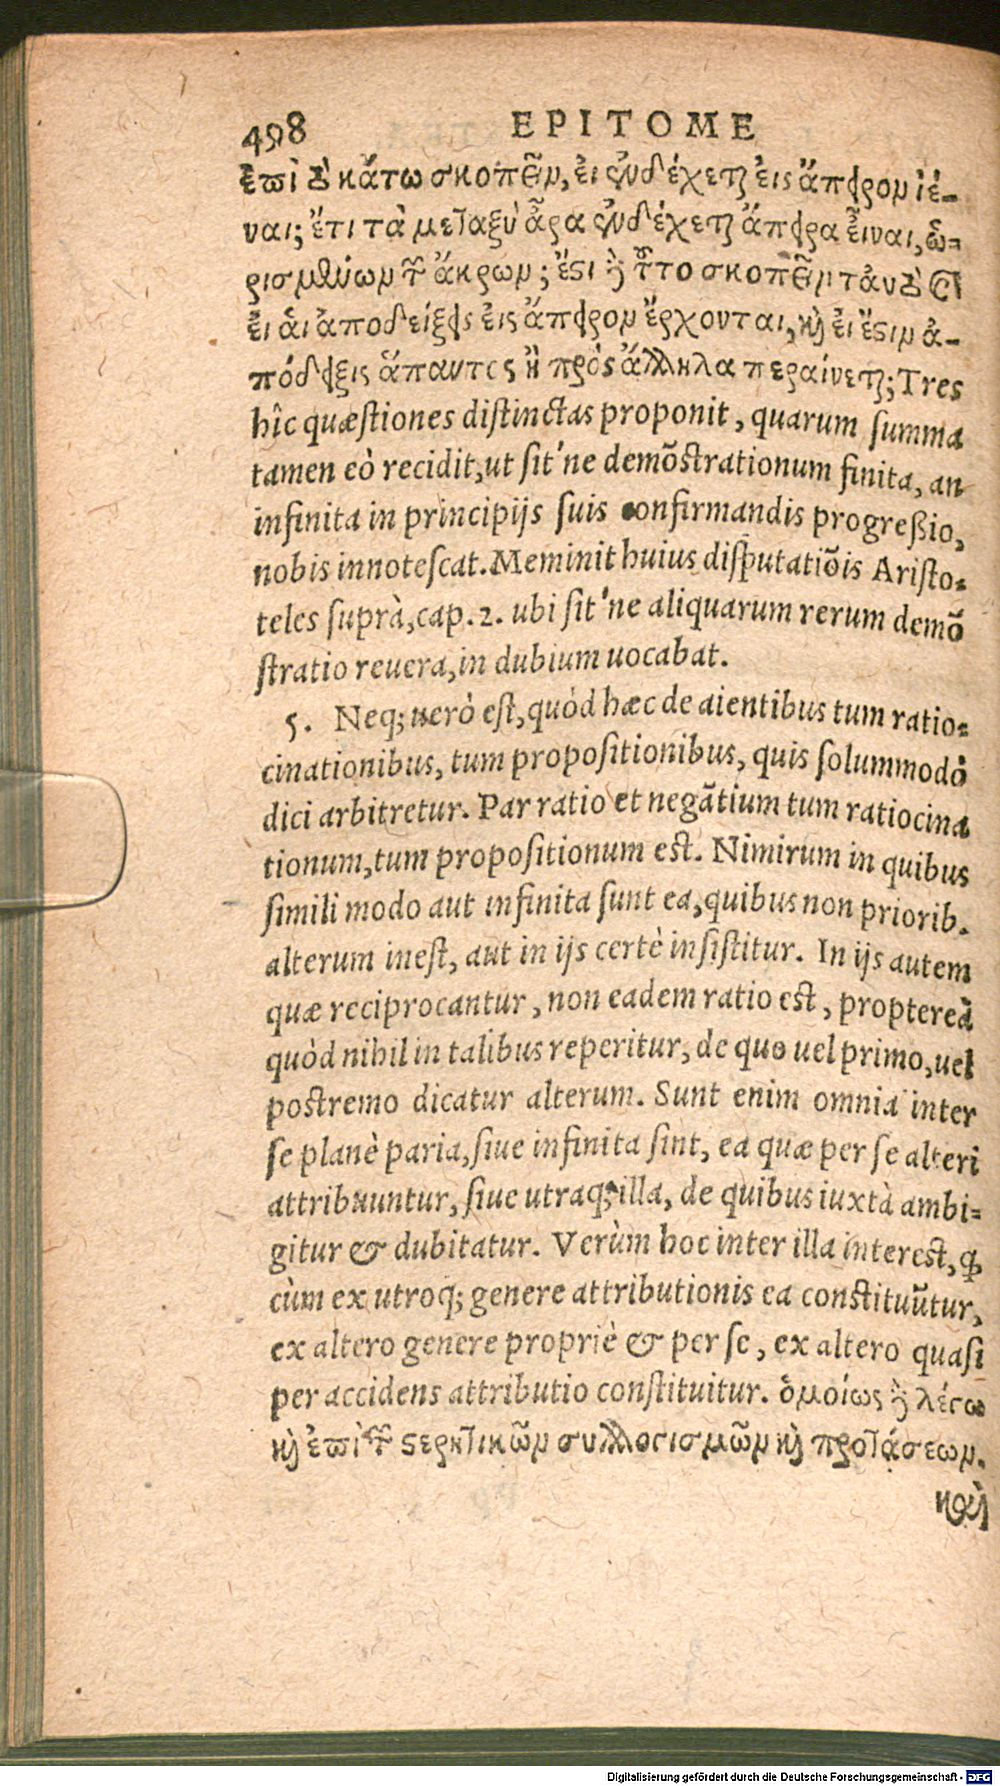 498 EPITOME
ἐπὶ τὸ κάτω σκοπεῖν, εἰ ἐνδέχεται εἰς ἄπειρον ἰέ-
ναι; ἔτι τὰ μεταξὺ ἆρα ἐνδέχεται ἄπειρα εἶναι, ὡ-
ρισμένων τῶν ἄκρων; ἔστι δὲ τοῦτο σκοπεῖν ταυτὸ καὶ
εἰ αἱ ἀποδείξεις εἰς ἄπειρον ἔρχονται, καὶ εἰ ἔστιν ἀ-
πόδειξις ἅπαντος ἢ πρὸς ἄλληλα περαίνεται; Tres
hîc quæſtiones diſtinctas proponit, quarum ſumma
tamen eò recidit, ut ſit'ne demõſtrationum finita, an
infinita in principijs ſuis confirmandis progreßio,
nobis innoteſcat. Meminit huius diſputatiõis Ariſto-
teles ſuprà, cap. 2. ubi ſit'ne aliquarum rerum demõ
ſtratio reuera, in dubium uocabat.
5. Neq; uerò eſt, quòd hæc de aientibus tum ratio-
cinationibus, tum propoſitionibus, quis ſolummodò
dici arbitretur. Par ratio et negãtium tum ratiocina
tionum, tum propoſitionum eſt. Nimirum in quibus
ſimili modo aut infinita ſunt ea, quibus non priorib.
alterum ineſt, aut in ijs certè inſiſtitur. In ijs autem
quæ reciprocantur, non eadem ratio eſt, propterea
quòd nihil in talibus reperitur, de quo uel primo, uel
poſtremo dicatur alterum. Sunt enim omnia inter
ſe planè paria, ſiue infinita ſint, ea quæ per ſe alteri
attribuuntur, ſiue utraq; illa, de quibus iuxtà ambi-
gitur & dubitatur. Verùm hoc inter illa intereſt, ꝙ
cùm ex utroq; genere attributionis ea conſtituũtur,
ex altero genere propriè & per ſe, ex altero quaſi
per accidens attributio conſtituitur. ὁμοίως δὲ λέγω
καὶ ἐπὶ τῶν στερητικῶν συλλογισμῶν καὶ προτάσεων.
καὶ
Digitalisierung gefördert durch die Deutsche Forschungsgemeinschaft - DFG